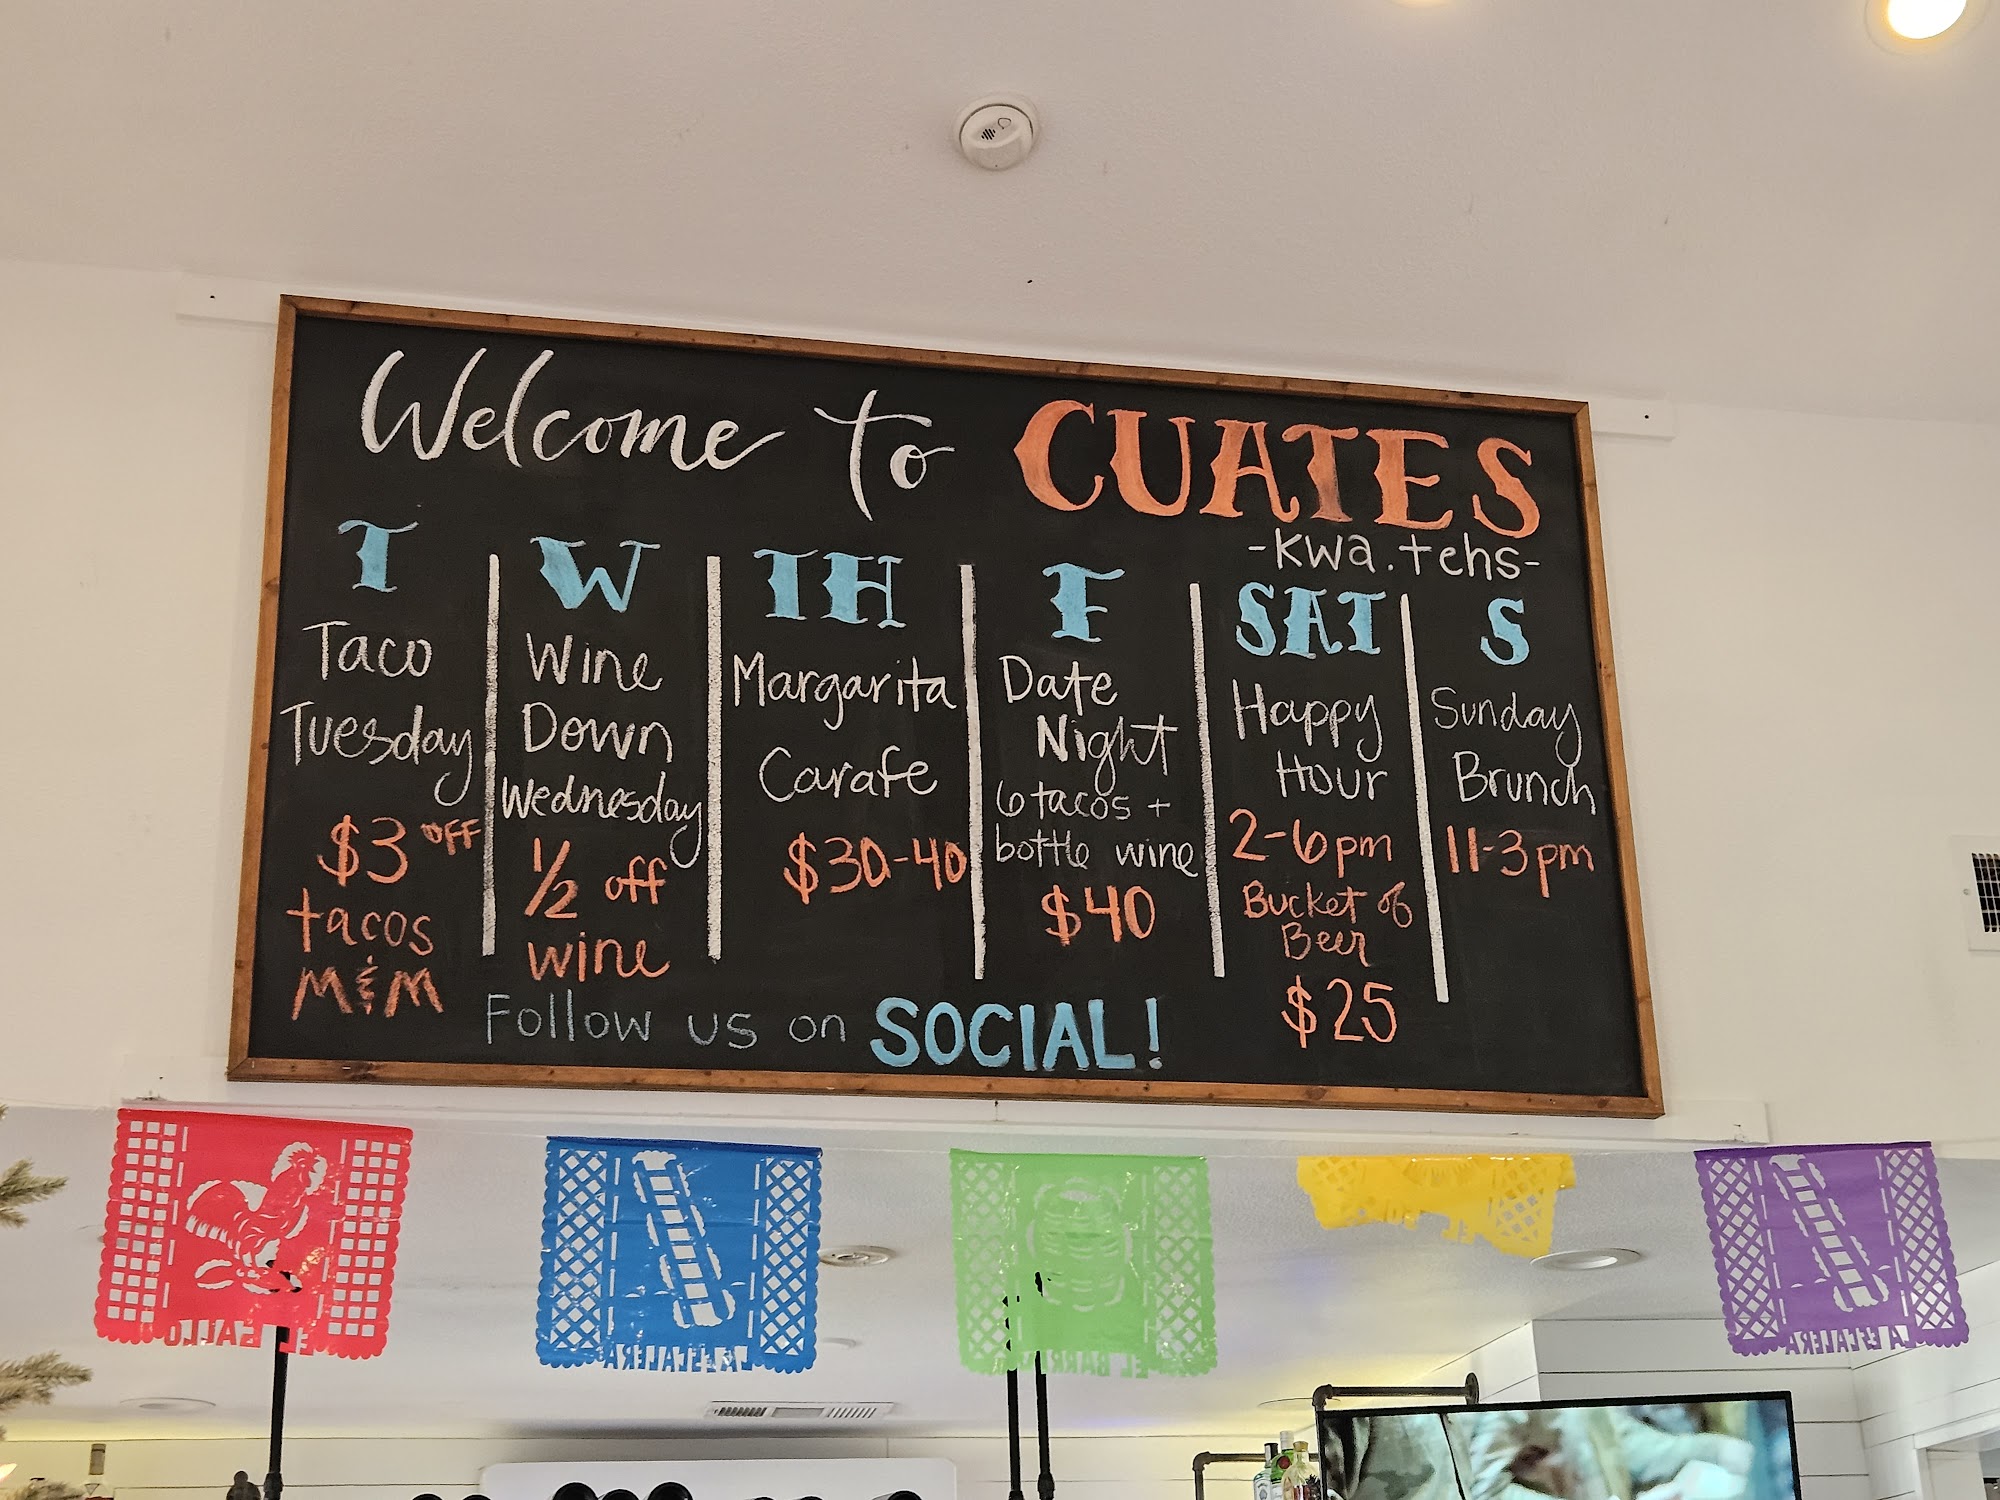 Welcome to CUATES
-kwa.tehs-
T
Taco
Tuesday
$3 OFF
tacos
M&M
W
Wine
Down
Wednesday
1/2 off
wine
TH
Margarita
Carafe
$30-40
F
Date
Night
6 tacos +
bottle wine
$40
SAT
Happy
Hour
2-6pm
Bucket of
Beer
$25
S
Sunday
Brunch
11-3pm
Follow us on SOCIAL!
EL GALLO
LA ESCALERA
EL
LA ESCALERA